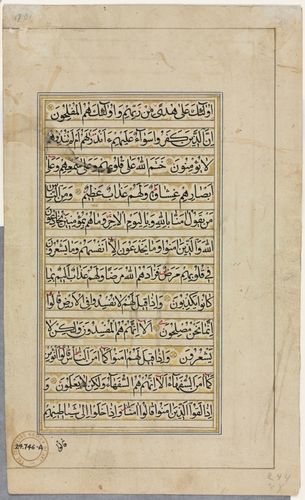 اولئك على هدى من ربهم واولئك هم المفلحون
ان الذين كفروا سواء عليهم ءانذرتهم ام لم تنذرهم
لا يؤمنون ختم الله على قلوبهم وعلى سمعهم وعلى
ابصارهم غشاوة ولهم عذاب عظيم ومن الناس
من يقول امنا بالله وباليوم الاخر وما هم بمؤمنين يخادعون
الله والذين امنوا وما يخدعون الا انفسهم وما يشعرون
في قلوبهم مرض فزادهم الله مرضا ولهم عذاب اليم بما
كانوا يكذبون واذا قيل لهم لا تفسدوا في الارض قالوا
انما نحن مصلحون الا انهم هم المفسدون ولكن لا
يشعرون واذا قيل لهم امنوا كما امن الناس قالوا انؤمن
كما امن السفهاء الا انهم هم السفهاء ولكن لا يعلمون و
اذا لقوا الذين امنوا قالوا امنا واذا خلوا الى شياطينهم
قالوا
29.746-A